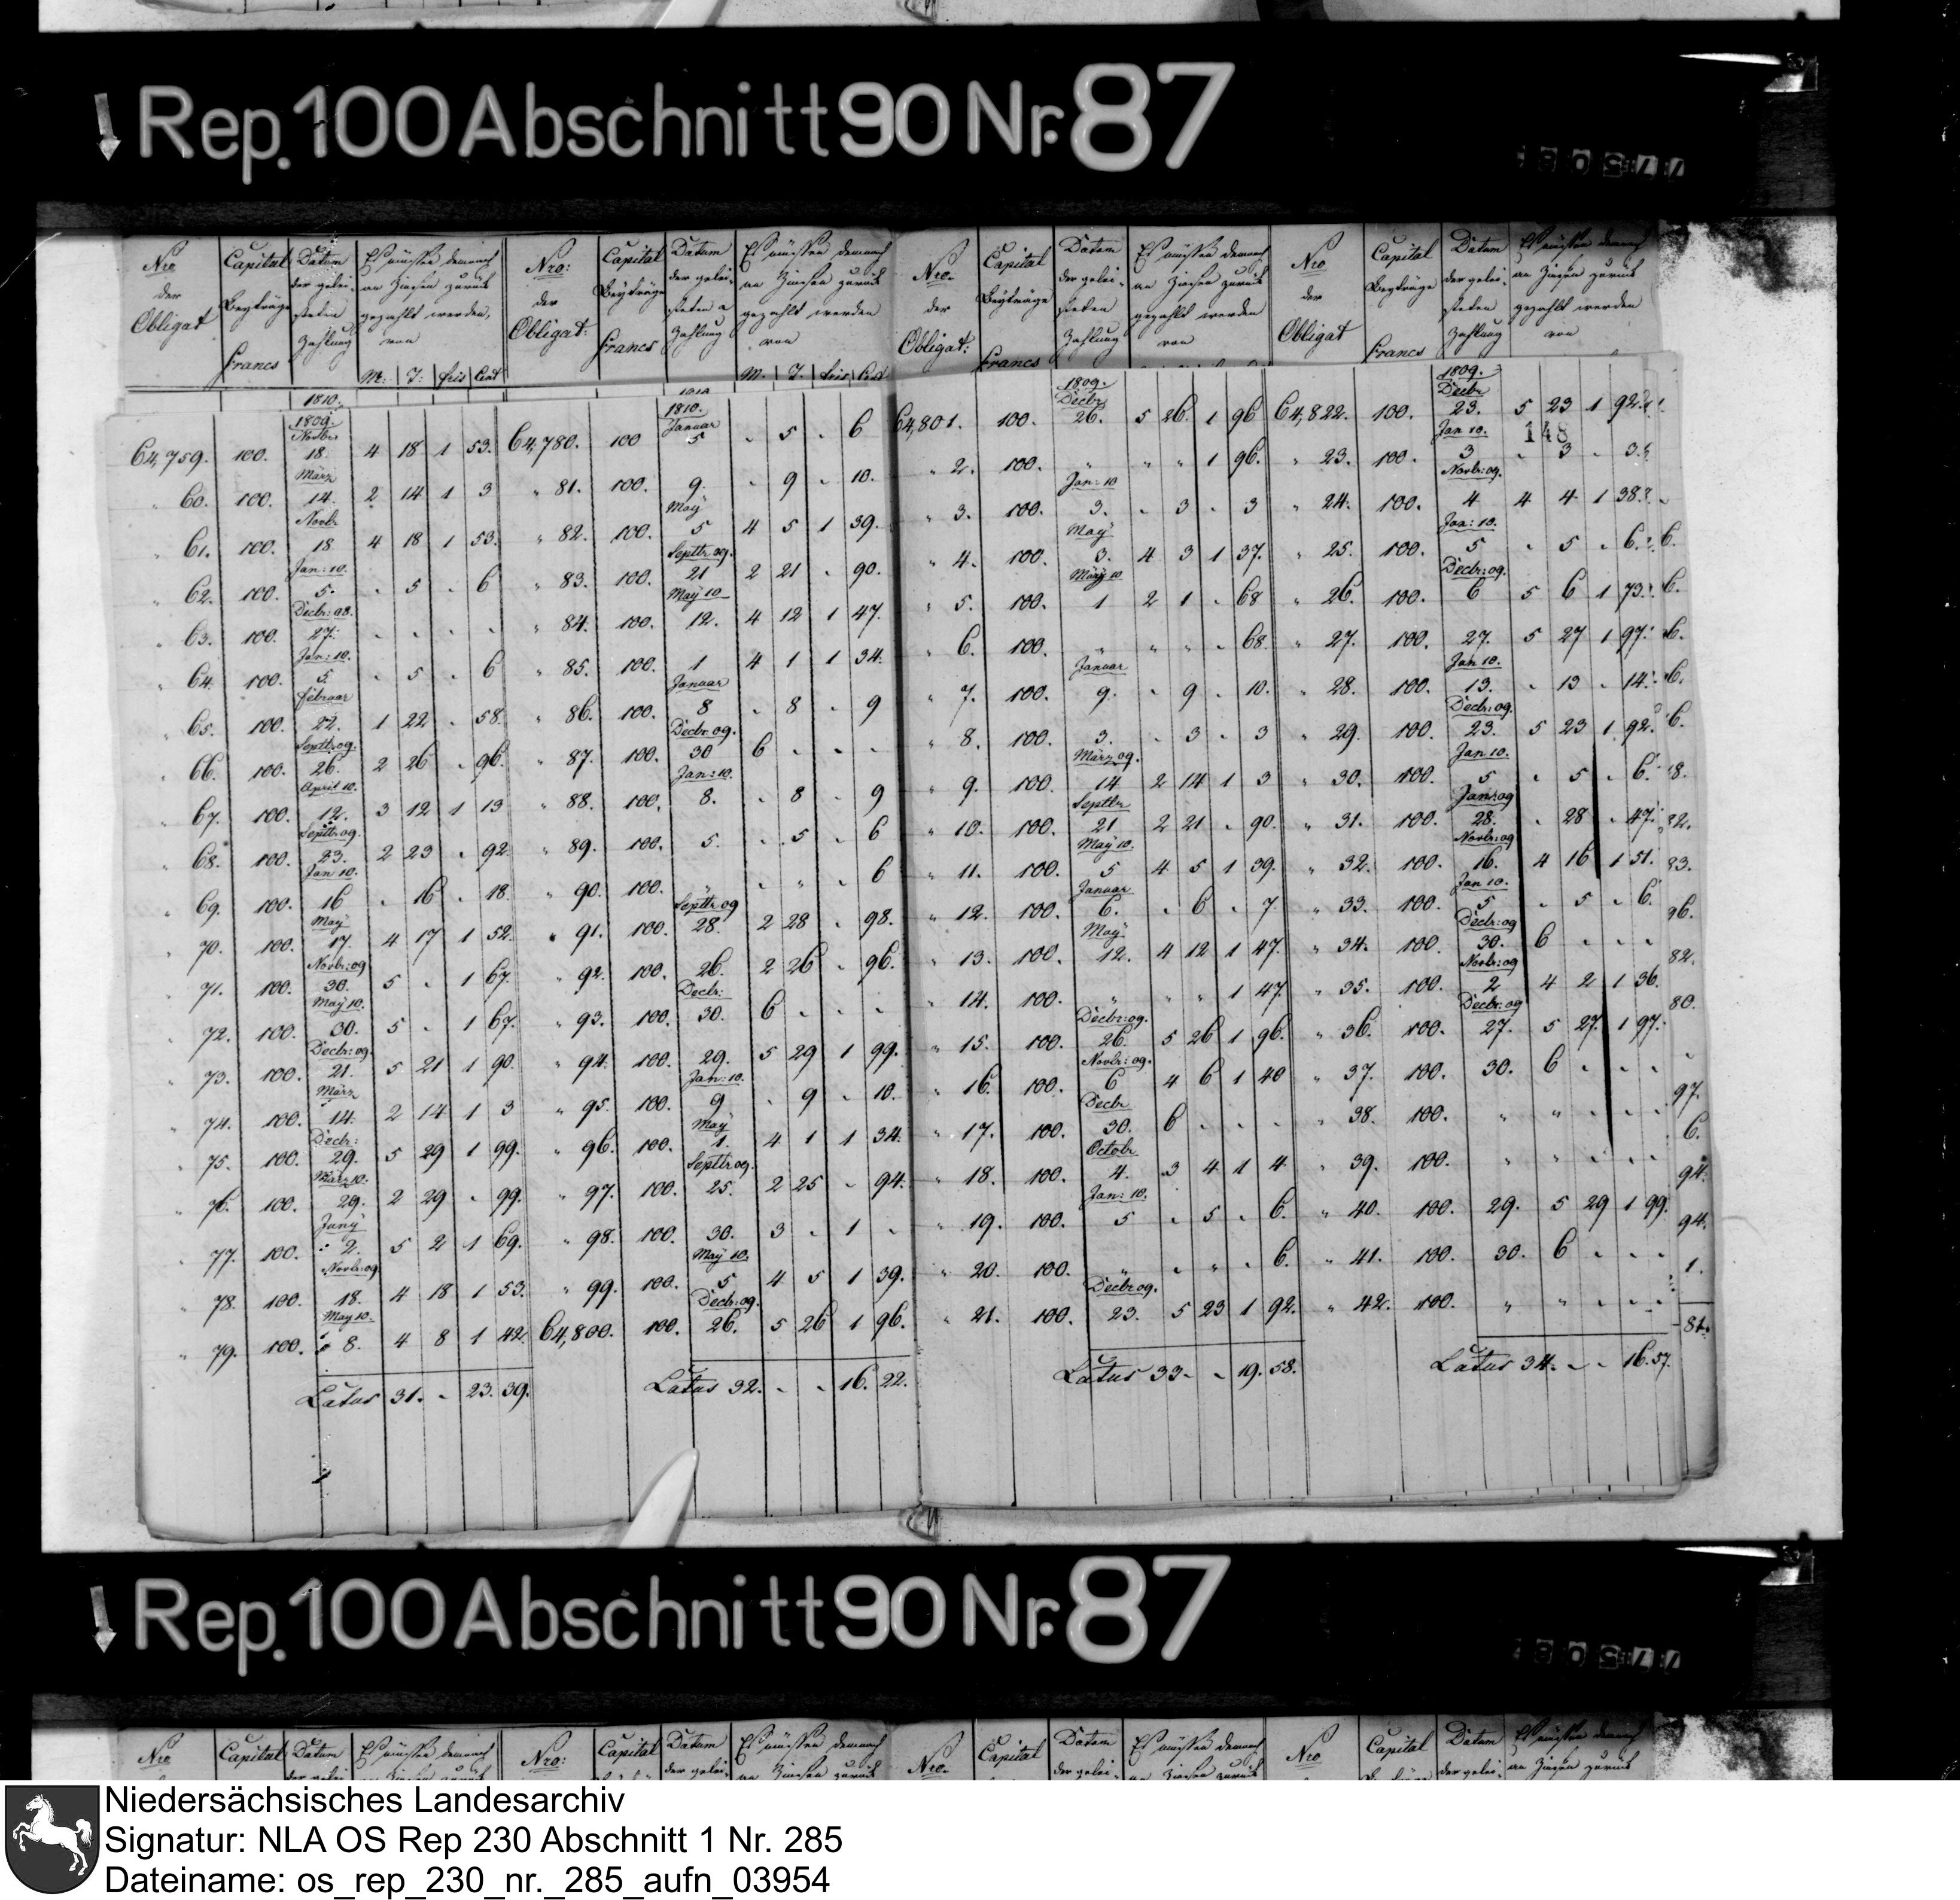 Rep. 100 Abschnitt 90 Nr. 87
Nro der Obligat
Capital Beyträge Francs
Datum der gelei- steten Zahlung
Es müssen demnach an Zinsen zurück gezahlt werden, von
M: T: frcs Cent
Nro: der Obligat:
Capital Beyträge Francs
Datum der gelei- steten Zahlung
Es müssen demnach an Zinsen zurück gezahlt werden von
M. T. frcs Cent
Nro. der Obligat:
Capital Beyträge Francs
Datum der gelei- steten Zahlung
Es müssen demnach an Zinsen zurück gezahlt werden von
Nro der Obligat
Capital Beyträge Francs
Datum der gelei- steten Zahlung
Es müssen demnach an Zinsen zurück gezahlt werden von
148
1810.
1809.
64,759. 100. Novbr 18. 4 18 1 53.
" 60. 100. März 14. 2 14 1 3
" 61. 100. Novbr 18 4 18 1 53.
" 62. 100. Jan: 10. 5. " 5 " 6
" 63. 100. Decbr: 08. 27. " " " "
" 64. 100. Jan: 10. 5. " 5 " 6
" 65. 100. Februar 22. 1 22 " 58.
" 66. 100. Septbr 09. 26. 2 26 " 96.
" 67. 100. April 10. 12. 3 12 1 13
" 68. 100. Septbr 09. 23. 2 23 " 92.
" 69. 100. Jan 10. 16 " 16 " 18.
" 70. 100. May 17. 4 17 1 52.
" 71. 100. Novbr: 09 30. 5 " 1 67.
" 72. 100. May 10. 30. 5 " 1 67.
" 73. 100. Decbr: 09. 21. 5 21 1 90.
" 74. 100. März 14. 2 14 1 3
" 75. 100. Decbr: 29. 5 29 1 99.
" 76. 100. März 10. 29. 2 29 " 99.
" 77. 100. Juny 2. 5 2 1 69.
" 78. 100. Novbr: 09 18. 4 18 1 53.
" 79. 100. May 10. 8. 4 8 1 42.
Latus 31. " 23. 39.
1810.
64,780. 100 Januar 5 " 5 " 6
" 81. 100. 9. " 9 " 10.
" 82. 100. May 5 4 5 1 39.
" 83. 100. Septbr. 09. 21 2 21 " 90.
" 84. 100. May 10 12. 4 12 1 47.
" 85. 100. 1 4 1 1 34.
" 86. 100. Januar 8 " 8 " 9
" 87. 100. Decbr. 09. 30 6 " " "
" 88. 100. Jan: 10. 8. " 8 " 9
" 89. 100. 5. " 5 " 6
" 90. 100. " " " " 6
" 91. 100. Septbr 09 28. 2 28 " 98.
" 92. 100. 26. 2 26 " 96.
" 93. 100. Decbr: 30. 6 " " "
" 94. 100. 29. 5 29 1 99.
" 95. 100. Jan: 10. 9 " 9 " 10.
" 96. 100. May 1. 4 1 1 34.
" 97. 100. Septbr 09. 25. 2 25 " 94.
" 98. 100. 30. 3 " 1 "
" 99. 100. May 10. 5 4 5 1 39.
64,800. 100. Decbr: 09. 26. 5 26 1 96.
Latus 32. " " 16. 22.
1809.
64,801. 100. Decbr 26. 5 26. 1 96
" 2. 100. " " " 1 96.
" 3. 100. Jan: 10 3. " 3 " 3
" 4. 100. May 3. 4 3 1 37.
" 5. 100. März 10 1 2 1 " 68
" 6. 100. " " " " 68.
" 7. 100. Januar 9. " 9 " 10.
" 8. 100. 3. " 3 " 3
" 9. 100. März 09. 14 2 14 1 3
" 10. 100. Septbr 21 2 21 " 90.
" 11. 100. May 10. 5 4 5 1 39.
" 12. 100. Januar 6. " 6 " 7.
" 13. 100. May 12. 4 12 1 47.
" 14. 100. " " " 1 47.
" 15. 100. Decbr: 09. 26. 5 26 1 96.
" 16. 100. Novbr: 09. 6 4 6 1 40
" 17. 100. Decbr 30. 6 " " "
" 18. 100. Octobr 4. 3 4 1 4.
" 19. 100. Jan: 10. 5 " 5 " 6.
" 20. 100. " " " " 6.
" 21. 100. Decbr 09. 23. 5 23 1 92.
Latus 33. " 19. 58.
1809.
64,822. 100. Decbr 23. 5 23 1 92.
" 23. 100. Jan 10. 3 " 3 " 3.
" 24. 100. Novbr: 09. 4 4 4 1 38.
" 25. 100. Jan: 10. 5 " 5 " 6.
" 26. 100. Decbr: 09. 6 5 6 1 73.
" 27. 100. 27. 5 27 1 97.
" 28. 100. Jan 10. 13. " 13 " 14.
" 29. 100. Decbr: 09. 23. 5 23 1 92.
" 30. 100. Jan 10. 5 " 5 " 6.
" 31. 100. Jan: 09 28. " 28 " 47.
" 32. 100. Novbr: 09 16. 4 16 1 51.
" 33. 100. Jan 10. 5 " 5 " 6.
" 34. 100. Decbr: 09 30. 6 " " "
" 35. 100. Novbr: 09 2 4 2 1 36.
" 36. 100. Decbr: 09 27. 5 27 1 97.
" 37. 100. 30. 6 " " "
" 38. 100. " " " " "
" 39. 100. " " " " "
" 40. 100. 29. 5 29 1 99.
" 41. 100. 30. 6 " " "
" 42. 100. " " " " "
Latus 34. " " 16. 57.
6.
6.
6.
6.
6.
8.
82.
83.
96.
82.
80.
97.
6.
94.
94.
1.
81.
Rep. 100 Abschnitt 90 Nr. 87
Nro Capital Datum Es müssen demnach Nro: Capital Datum Es müssen demnach Nro. Capital Datum Es müssen demnach Nro Capital Datum Es müssen demnach
der gelei- an Zinsen zurück der gelei- an Zinsen zurück der gelei- an Zinsen zurück der gelei- an Zinsen zurück
Niedersächsisches Landesarchiv
Signatur: NLA OS Rep 230 Abschnitt 1 Nr. 285
Dateiname: os_rep_230_nr._285_aufn_03954